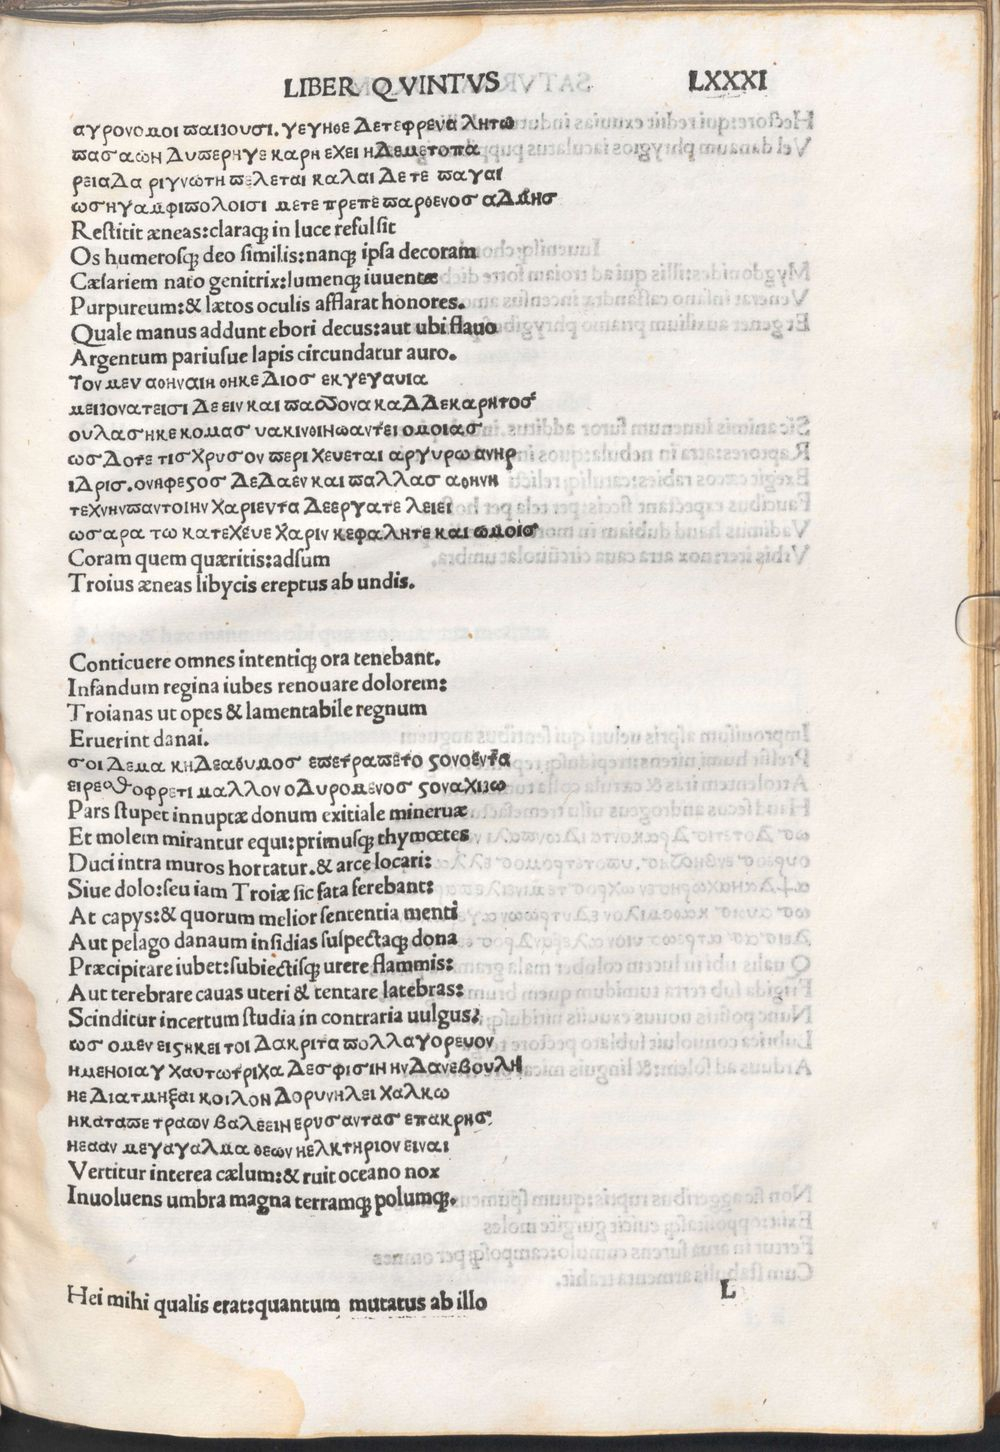 LIBER QVINTVS LXXXI
αγρονομοι παιζουσι. γεγηθε Δετεφρενα λητω
πασαωη Δυπερηγε καρη εχει ηΔεμετοπα
ρειαΔα ριγνωτη πελεται καλαι Δετε παγαι
ωσηγαμφιπολοισι μετεπρεπε παρθενοσ αΔμησ
Restitit æneas:claraq; in luce refulsit
Os humerosq; deo similis:nanq; ipsa decoram
Cæsariem nato genitrix:lumenq; iuuentæ
Purpureum:& lætos oculis afflarat honores.
Quale manus addunt ebori decus:aut ubi flauo
Argentum pariusue lapis circundatur auro.
Τον μεν αθηναιη θηκε Διοσ εκγεγαυια
μειζονατεισι Δεειν και πασσονα καΔΔεκαρητοσ
ουλασηκε κομασ υακινθιηωαντει ομοιασ
ωσ Δοτε τισ χρυσον περι χευεται αργυρω ανηρ
ιΔρισ. ονηφεςοσ ΔεΔαεν και παλλασ αθηνη
τεχνηνπαντοιην χαριεντα Δεεργατε λειει
ωσαρα τω κατεχευε χαριν κεφαλητε και ωμοισ
Coram quem quæritis:adsum
Troius æneas libycis ereptus ab undis.
Conticuere omnes intentiq; ora tenebant.
Infandum regina iubes renouare dolorem:
Troianas ut opes & lamentabile regnum
Eruerint danai.
σοι Δεμα κηΔεαθυμοσ επετραπετο ςονοεντα
ειρεσθοφρετι μαλλον οΔυρομενοσ ςοναχιζω
Pars stupet innuptæ donum exitiale mineruæ
Et molem mirantur equi:primusq; thymœtes
Duci intra muros hortatur.& arce locari:
Siue dolo:seu iam Troiæ sic fata ferebant:
At capys:& quorum melior sententia menti
Aut pelago danaum insidias suspectaq; dona
Præcipitare iubet:subiectisq; urere flammis:
Aut terebrare cauas uteri & tentare latebras:
Scinditur incertum studia in contraria uulgus:
ωσ ομεν ειςηκει τοι Δακριτα πολλαγορευον
ημενοιαγ χαυτωτριχα Δεσφισιη ηνΔανεβουλη
ηε Διατμηξαι κοιλον Δορυνηλει χαλκω
ηκαταπε τραων βαλεειν ερυσαντασ επακρησ
ηεααν μεγαγαλμα θεων ηελκτηριον ειναι
Vertitur interea cælum:& ruit oceano nox
Inuoluens umbra magna terramq; polumq;.
Hei mihi qualis erat:quantum mutatus ab illo
L